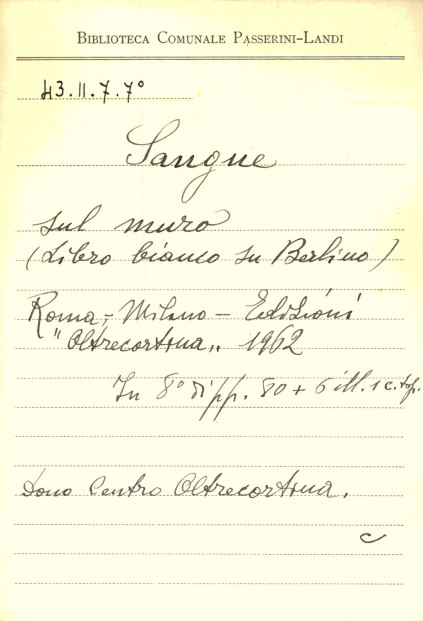 BIBLIOTECA COMUNALE PASSERINI-LANDI
43.II.7.7°
Sangue
sul muro
(Libro bianco su Berlino)
Roma, - Milano - Edizioni
"Oltrecortina" 1962
In 8° di pp. 80 + 6 ill. 1 c. top.
Dono Centro Oltrecortina.
C